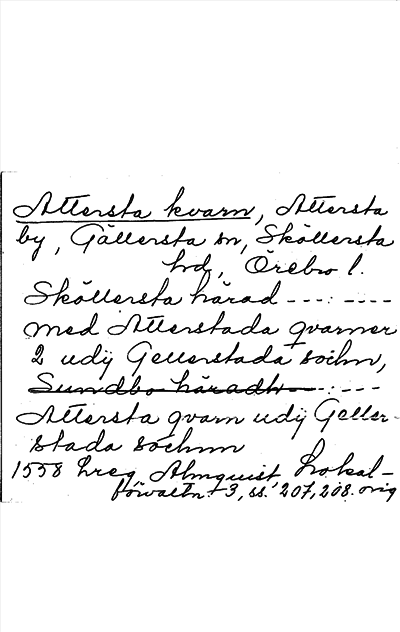 Attersta kvarn, Attersta
by, Gällersta sn, Sköllersta
hd, Örebro l.
Sköllersta härad ---:----
med Atterstada qvarner
2 udij Gellerstada sochn,
Sundbo häradh ---:---
Attersta qvarn udij Geller-
stada sochnn
1558 hreg Almquist Lokal-
förvaltn. 3, ss. 207, 208. orig